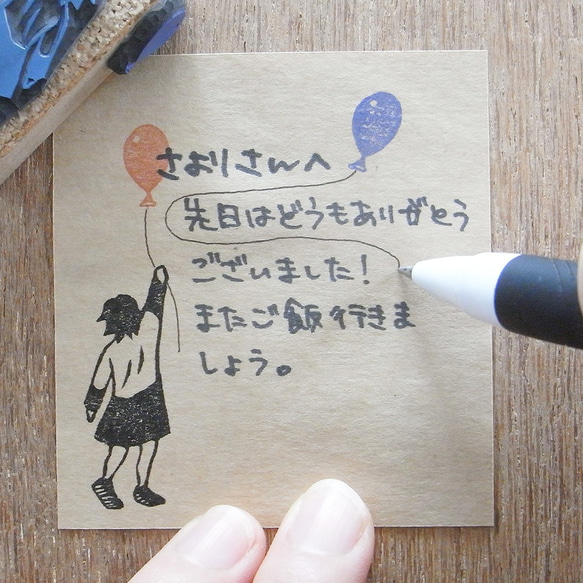 さおりさんへ
先日はどうもありがとう
ございました!
またご飯行きま
しょう。